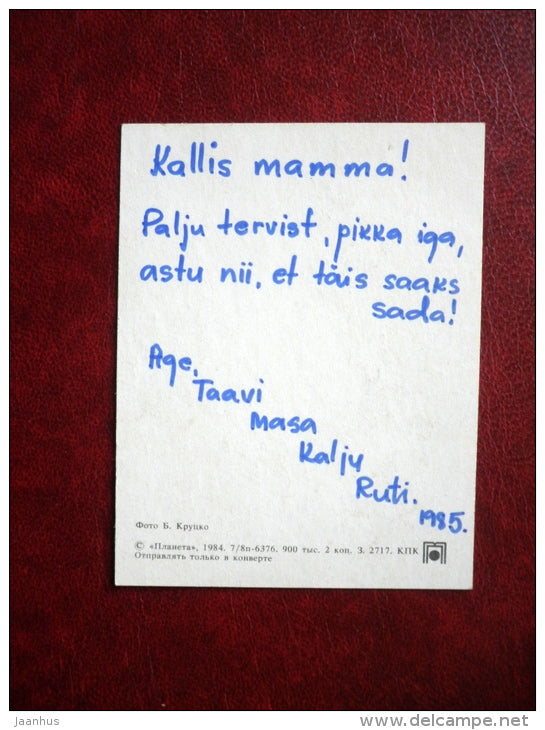 Kallis mamma!
Palju tervist, pikka iga,
astu nii, et täis saaks
sada!
Age,
Taavi
Masa
Kalju
Ruti.
1985.
Фото Б. Круцко
© «Планета», 1984. 7/8п-6376. 900 тыс. 2 коп. З. 2717. КПК
Отправлять только в конверте
Jaanhus
www.delcampe.net